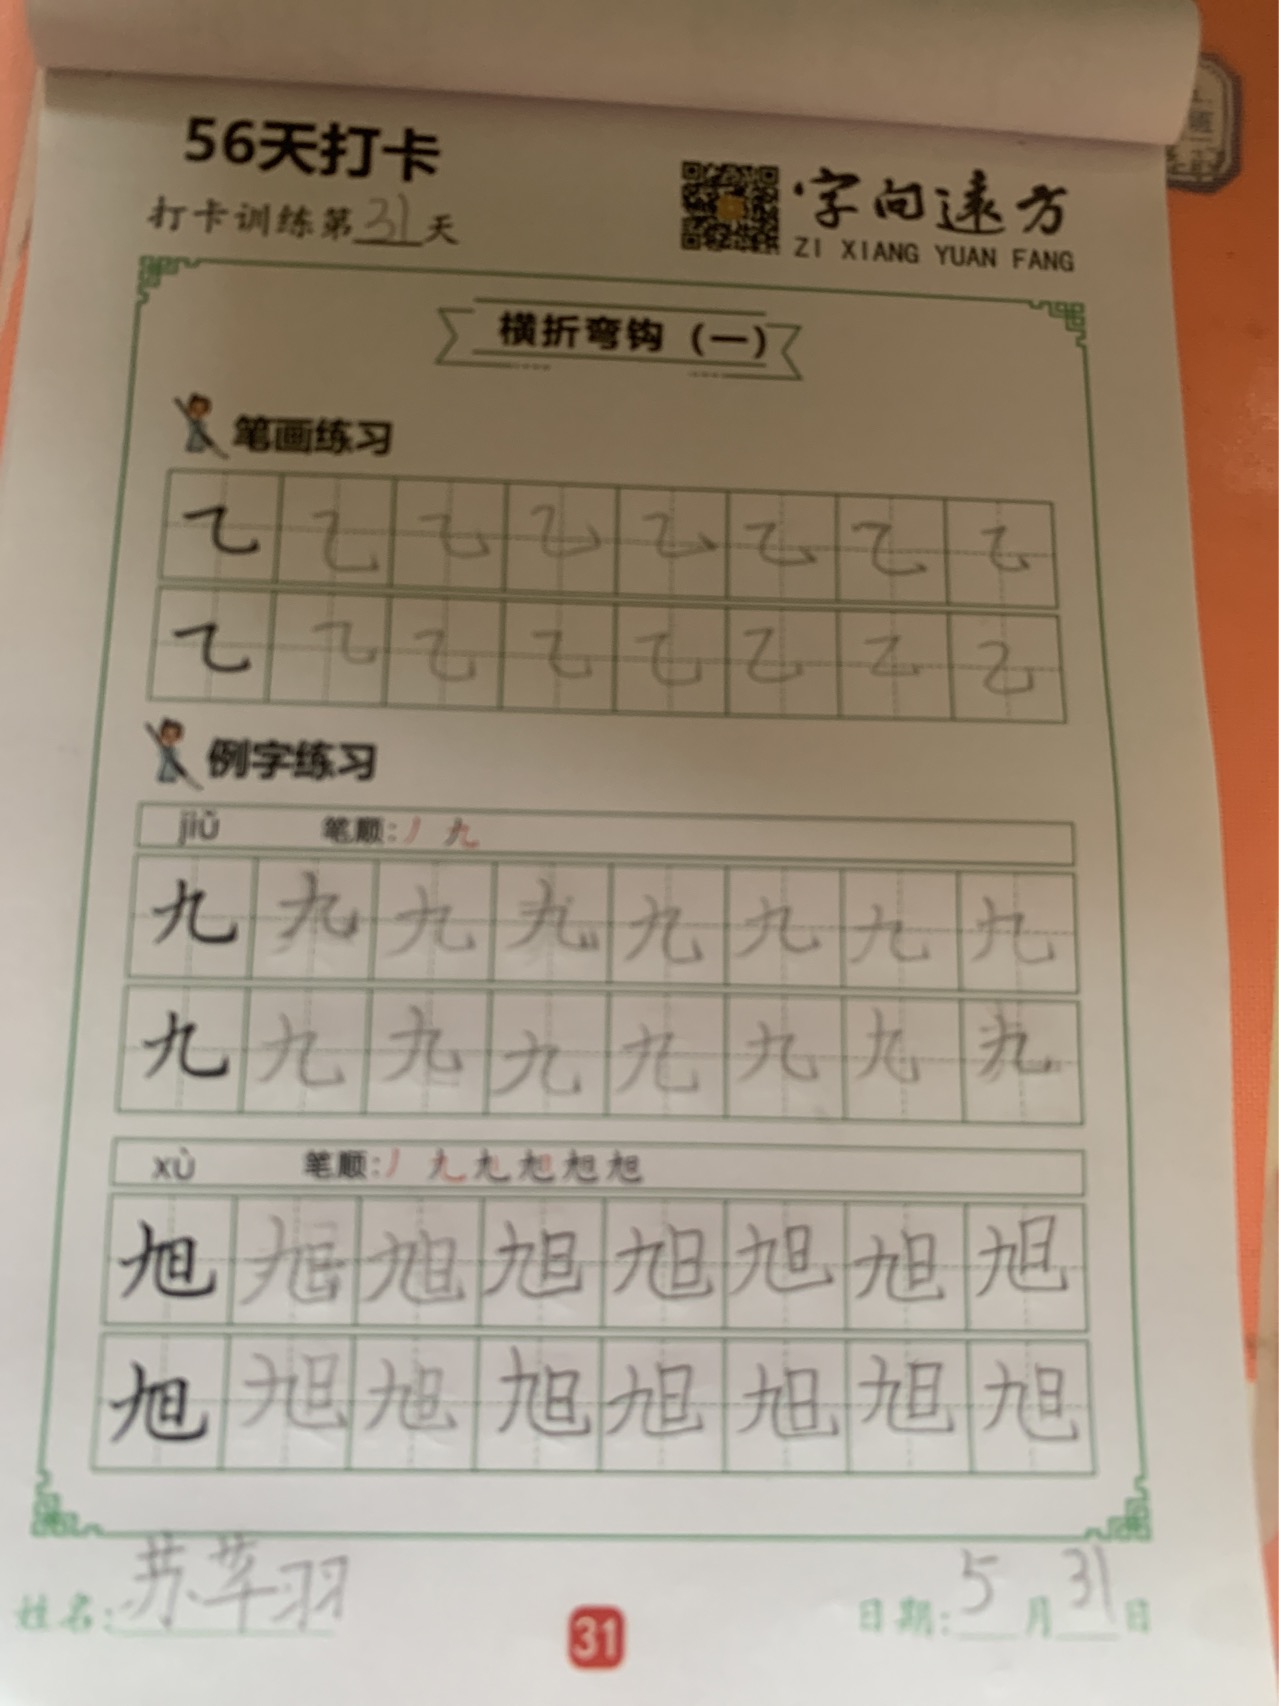 56天打卡
打卡训练第31天
字向远方
ZI XIANG YUAN FANG
横折弯钩（一）
笔画练习
乙乙乙乙乙乙乙乙
乙乙乙乙乙乙乙乙
例字练习
jiǔ 笔顺:丿 九
九九九九九九九九
九九九九九九九九
xù 笔顺:丿 九 旭 旭 旭
旭旭旭旭旭旭旭旭
旭旭旭旭旭旭旭旭
姓名:苏芊羽
31
日期:5月31日